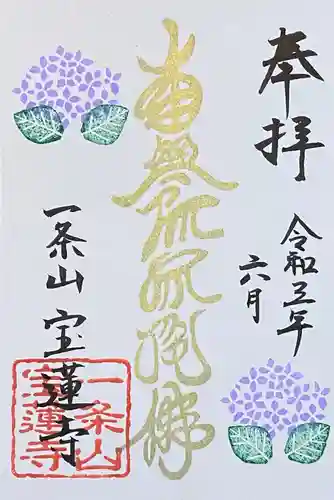 奉拝
令和三年
六月
南無阿弥陀佛
一条山 宝蓮寺
一条山
宝蓮寺